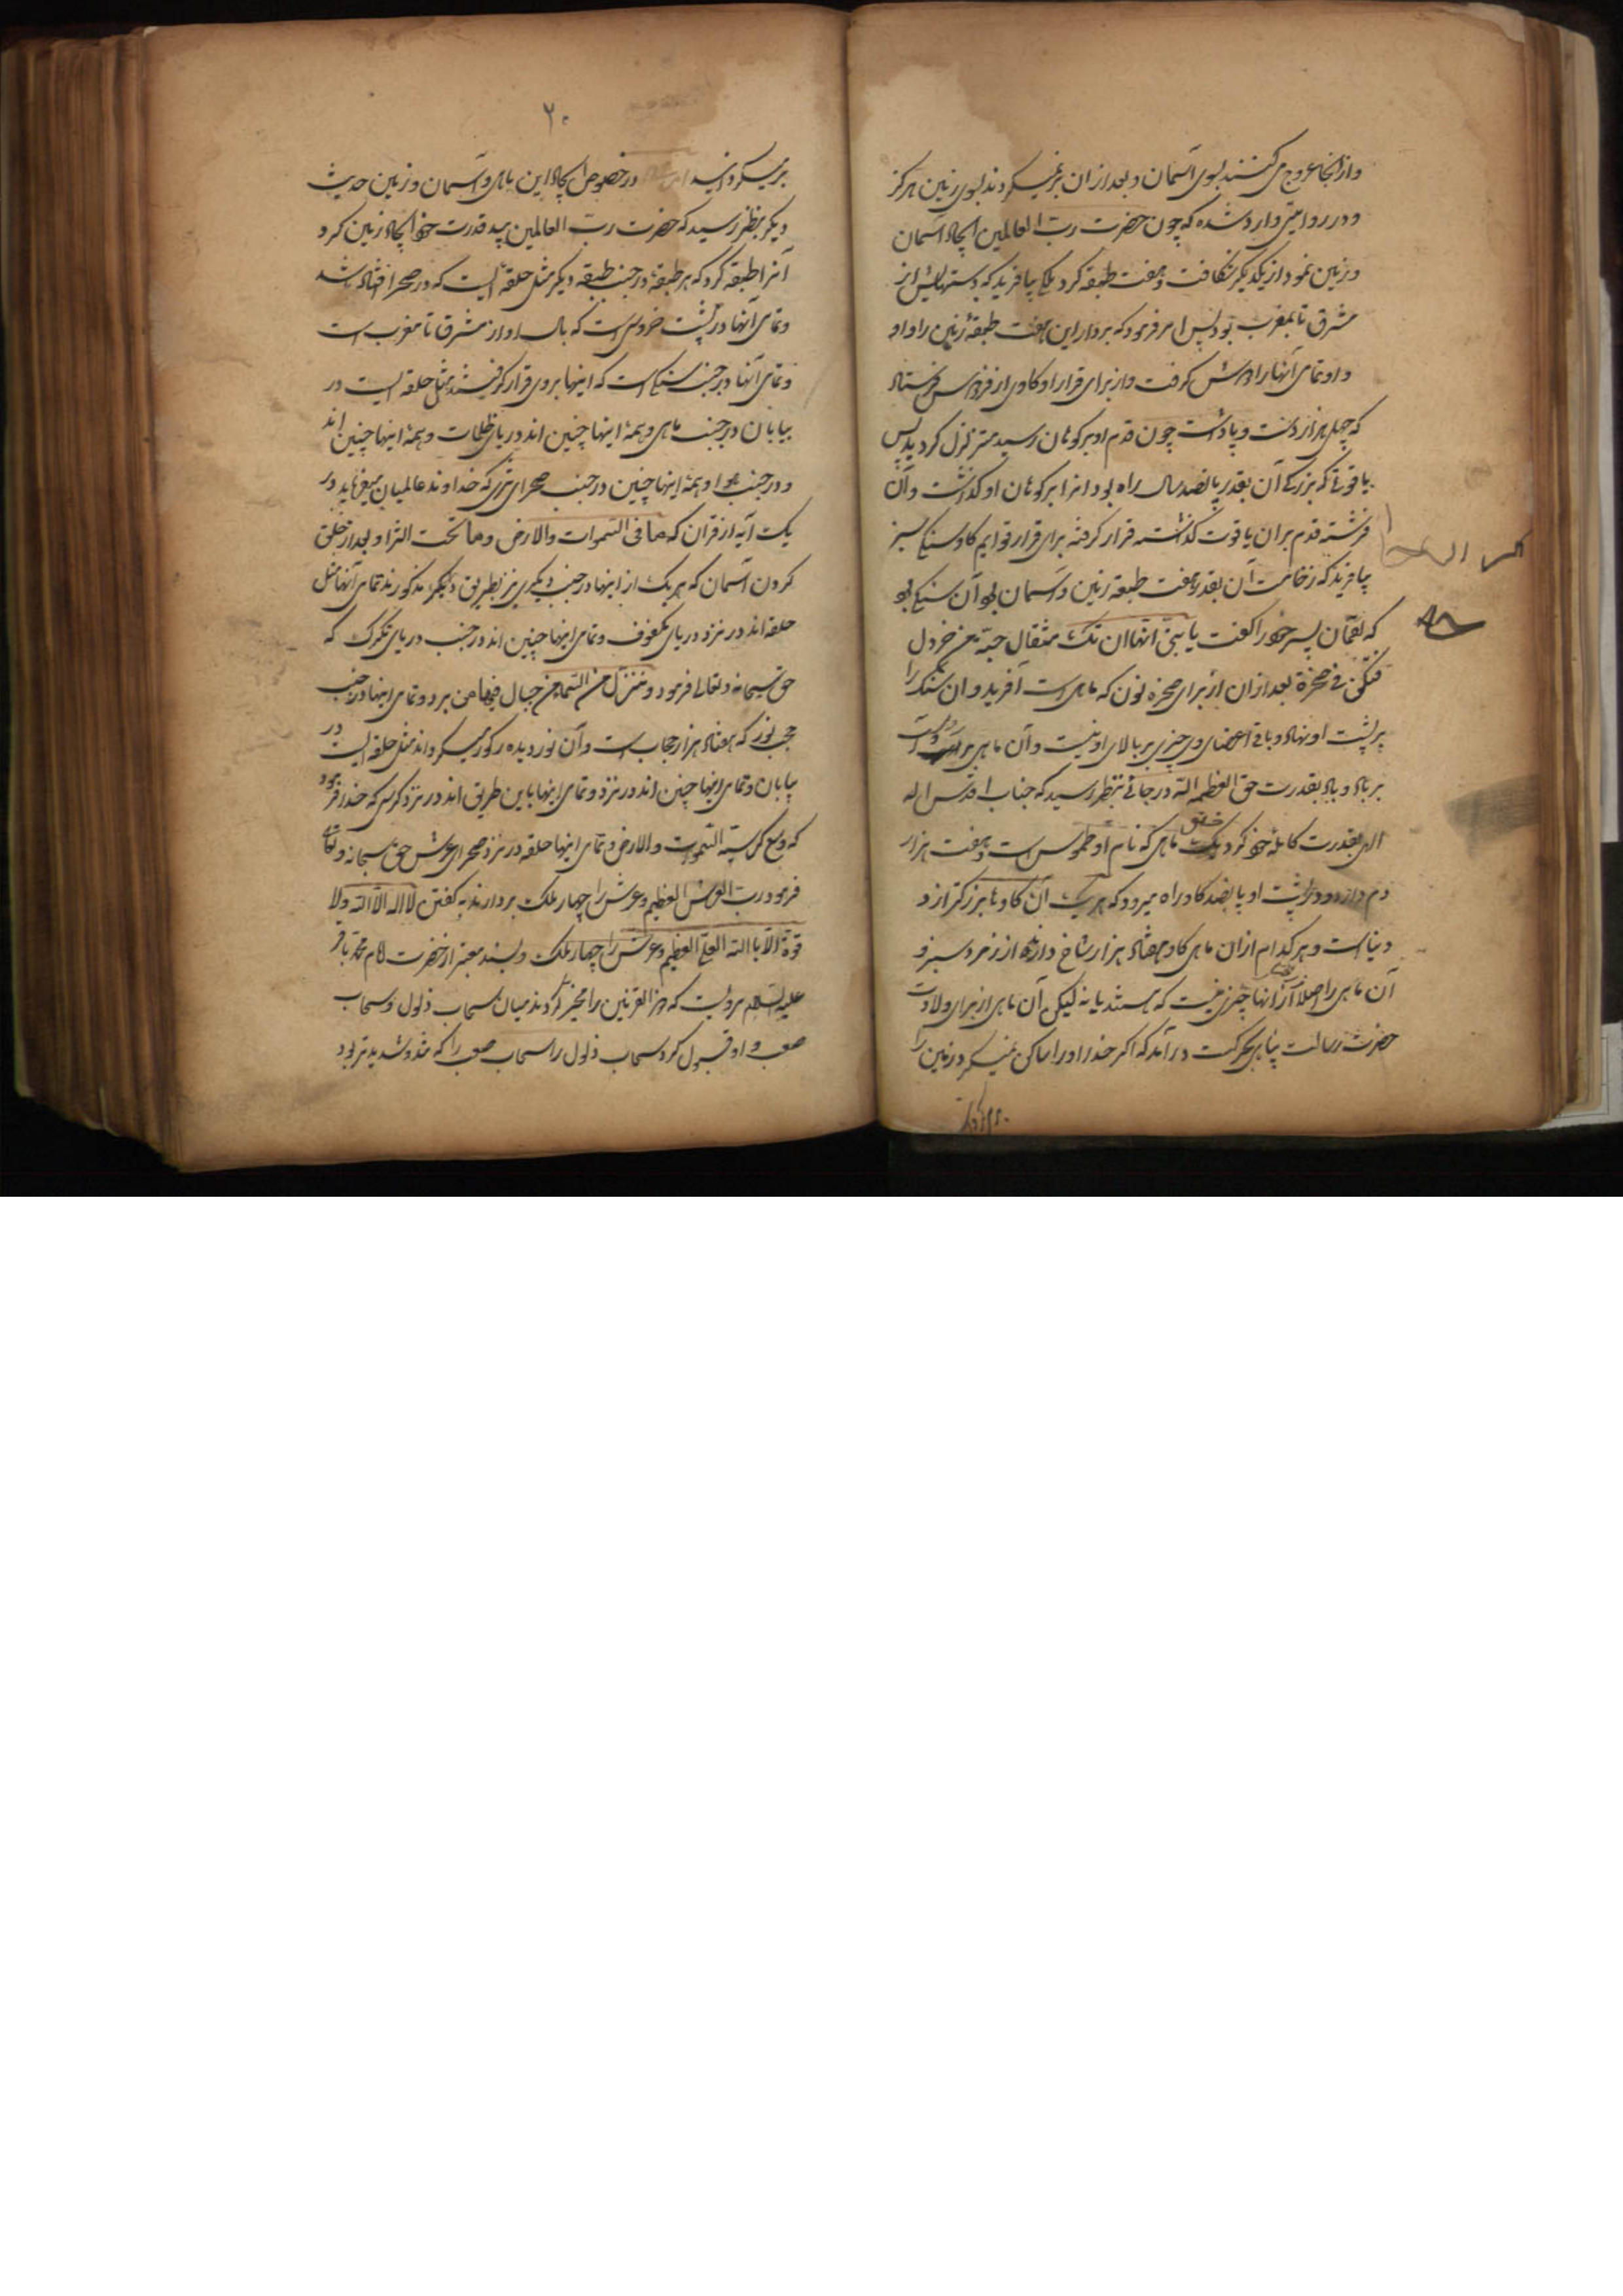 وازانجا عروج می کنند بسوی آسمان و بعد ازان برنمیگردند بسوی زمین هرگز
و در روایتی وارد شده که چون حضرت رب العالمین ایجاد آسمان
و زمین نمود از یکدیگر شکافت و هفت طبقه کرد ملکی بیافرید که دستهایش از
مشرق تا بمغرب بود پس امر فرمود که بردار این هفت طبقهٔ زمین را و او
و او تمامی آنها را بدوش گرفت و از برای قرار او گاوی از فردوس فرستاد
که چهل هزار دست و پا داشت چون قدم او بر کوهان رسید متزلزل گردید پس
یاقوتی که بزرگی آن بقدر پانصد سال راه بود انرا بر کوهان او گذاشت و آن
فرشته قدم بران یاقوت گذاشته قرار گرفته برای قرار قوایم گاو سنگی سبز
بیافرید که ضخامت آن بقدر هفت طبقه زمین و آسمان بود آن سنگی بود
که لقمان پسر خود را گفت یا بنی انها ان تک مثقال حبة من خردل
فتکن فی صخرة بعد ازان از برای صخره نون که ماهی است آفرید و ان سنگ را
بر پشت او نهاد و باقی اعضای وی چیزی بر بالای او نیست و آن ماهی بر
بر باد و باد بقدرت حق العظمه الله در جائی بنظر رسید که جناب اقدس اله
الهی بقدرت کاملهٔ خود خلق کرد یک ماهی که نام او طموس است و هفت هزار
دم دارد و در پشت او پانصد گاو راه میرود که هر یک آن گاوها بزرگتر از
دنیاست و هر کدام ازان ماهی گاو هفتاد هزار شاخ دارند از زمرد سبز و
آن ماهی را اصلا از آنها خبری نیست که هستند یا نه لیکن آن ماهی از برای ولادت
حضرت رسالت پناهی بحرکت درآمد که اگر خدا او را ساکن نمیکرد زمین را
۲۰
برمیگردانید در خصوص ایجاد این ماهی و آسمان و زمین حدیث
دیگر بنظر رسید که حضرت رب العالمین بید قدرت خود ایجاد زمین کرد
آنرا طبقه کرد که هر طبقه در جنب طبقه دیگر مثل حلقه ایست که در صحرا افتاده باشد
و تمامی آنها در پشت خروسی است که بال او از مشرق تا مغرب است
و تمامی آنها در جنب سنگی است که اینها بروی قرار گرفتند مثل حلقه ایست در
بیابان و در جنب ماهی و همهٔ اینها چنین اند در دریای ظلمات و همهٔ اینها چنین اند
و در جنب هوا و همهٔ اینها چنین در جنب صحرای ثری که خداوند عالمیان میفرماید در
یک آیه از قران که ما فی السموات والارض وما تحت الثرا و بعد از خلق
کردن آسمان که هر یک از اینها در جنب دیگری نیز بطریق دیگر مذکورند تمامی آنها مثل
حلقه اند در نزد دریای مکفوف و تمامی اینها چنین اند در جنب دریای تگرگ که
حق سبحانه و تعالی فرمود و ننزل من السماء من جبال فیها من برد و تمامی اینها در جنب
حجب نور که هفتاد هزار حجاب است و آن نور دیده را کور میگرداند مثل حلقه ایست در
بیابان و تمامی اینها چنین اند در نزد و تمامی اینها باین طریق اند در نزد کرسی که خدا فرمود
که وسع کرسیه السموات والارض و تمامی اینها حلقه در نزد صحرای عرش حق سبحانه و تعالی
فرمود رب العرش العظیم و عرش را چهار ملک بردارند به گفتن لا اله الا الله ولا
قوة الا بالله العلی العظیم و عرش را چهار ملک و بسند معتبر از حضرت امام محمد باقر
علیه السلام مرویست که ذو القرنین را مخیر کردند میان سحاب ذلول و سحاب
صعب و او قبول کرد سحاب ذلول را سحاب صعب را که تند و شدیدتر بود